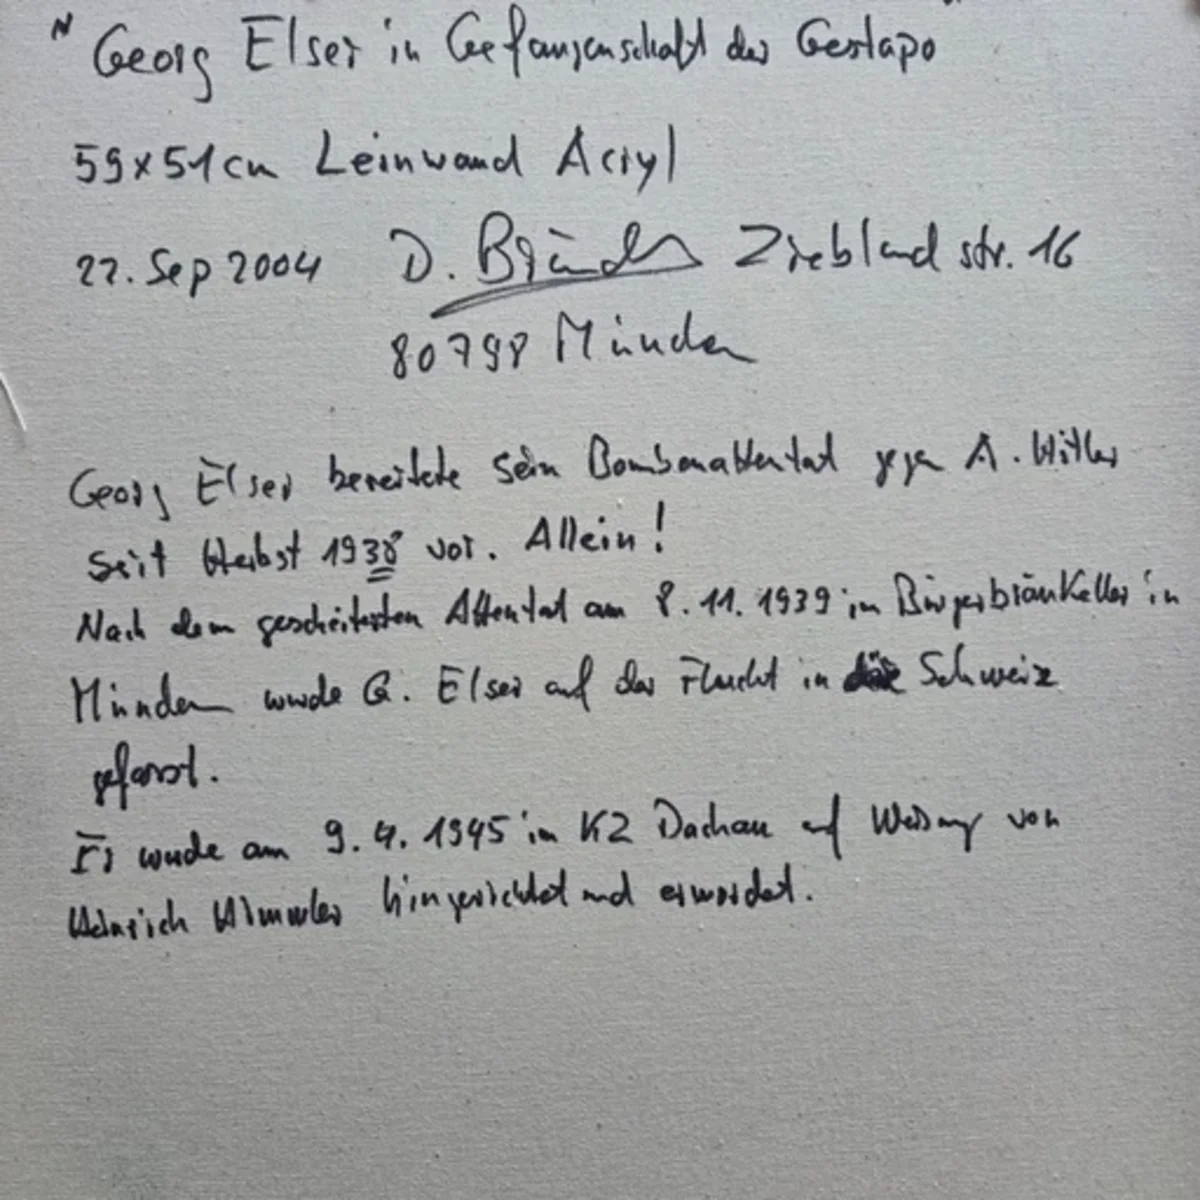 "Georg Elser in Gefangenschaft der Gestapo"
59x51cm Leinwand Acryl
22. Sep 2004 D. Ziebland str. 16
80798 München
Georg Elser bereitete sein Bombenattentat gegen A. Hitler
seit Herbst 1938 vor. Allein!
Nach dem gescheiterten Attentat am 8.11.1939 im Bürgerbräukeller in
München wurde G. Elser auf der Flucht in die Schweiz
gefasst.
Er wurde am 9.4.1945 im KZ Dachau auf Weisung von
Heinrich Himmler hingerichtet und ermordet.